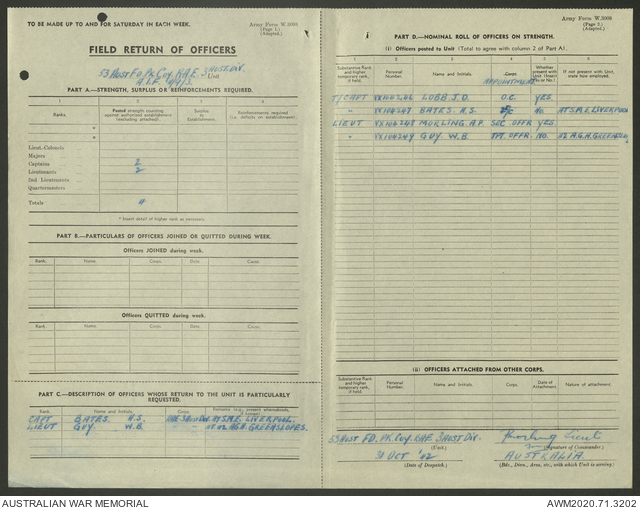 TO BE MADE UP TO AND FOR SATURDAY IN EACH WEEK.
Army Form W.3008
(Page 1.)
(Adapted.)
FIELD RETURN OF OFFICERS
53 AUST FD. PK. COY. RAE. 3 AUST DIV.
Unit
PART A.—STRENGTH, SURPLUS OR REINFORCEMENTS REQUIRED.
1 2 3 4
Ranks
Posted strength counting against authorised establishment (excluding attached).
Surplus to Establishment.
Reinforcements required (i.e. deficits on establishment).
*
*
Lieut.-Colonels
Majors
Captains 2
Lieutenants 2
2nd Lieutenants
Quartermasters
Totals 4
* Insert detail of higher rank as necessary.
PART B.—PARTICULARS OF OFFICERS JOINED OR QUITTED DURING WEEK.
Officers JOINED during week.
Rank. Name. Corps. Date. Cause.
Officers QUITTED during week.
Rank. Name. Corps. Date. Cause.
PART C.—DESCRIPTION OF OFFICERS WHOSE RETURN TO THE UNIT IS PARTICULARLY REQUESTED.
Rank. Name and Initials. Corps.
CAPT BATES H.S. RAE 3 AUST DIV. AT S.M.E. LIVERPOOL.
LIEUT GUY W.B. AT 112 A.G.H. GREENSLOPES.
Army Form W.3008
(Page 2.)
(Adapted.)
PART D.—NOMINAL ROLL OF OFFICERS ON STRENGTH.
(i) Officers posted to Unit (Total to agree with column 2 of Part A).
1 2 3 4 5 6
Substantive Rank and higher temporary rank, if held.
Personal Number.
Name and Initials.
Corps.
APPOINTMENT
Whether present with Unit (Yes or No.)
If not present with Unit, state how employed.
T/CAPT LOBB J.D. O.C. YES.
" BATES H.S. No. AT S.M.E. LIVERPOOL
LIEUT VX104248 MORLING A.P. SEC. OFFR YES.
" VX104249 GUY W.B. TPT. OFFR. NO. 112 A.G.H. GREENSLOPES
(ii) OFFICERS ATTACHED FROM OTHER CORPS.
Substantive Rank and higher temporary rank, if held.
Personal Number.
Name and Initials.
Corps.
Date of Attachment.
Nature of attachment.
53 AUST FD. PK. COY. RAE 3 AUST DIV. Morling Lieut
(Unit.) (Signature of Commander.)
31 OCT '42 AUSTRALIA.
(Date of Despatch.) (Bde., Divn., Area, etc., with which Unit is serving.)
AUSTRALIAN WAR MEMORIAL AWM2020.71.3202